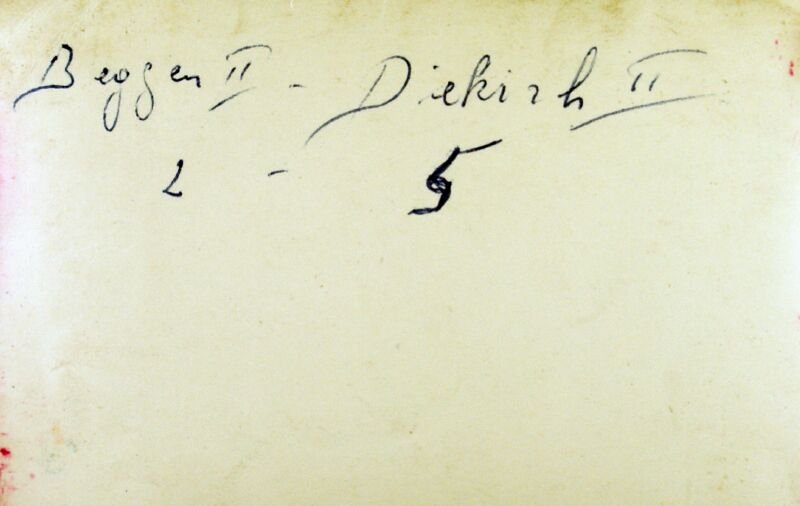 Beggen II - Diekirch II
2 - 5